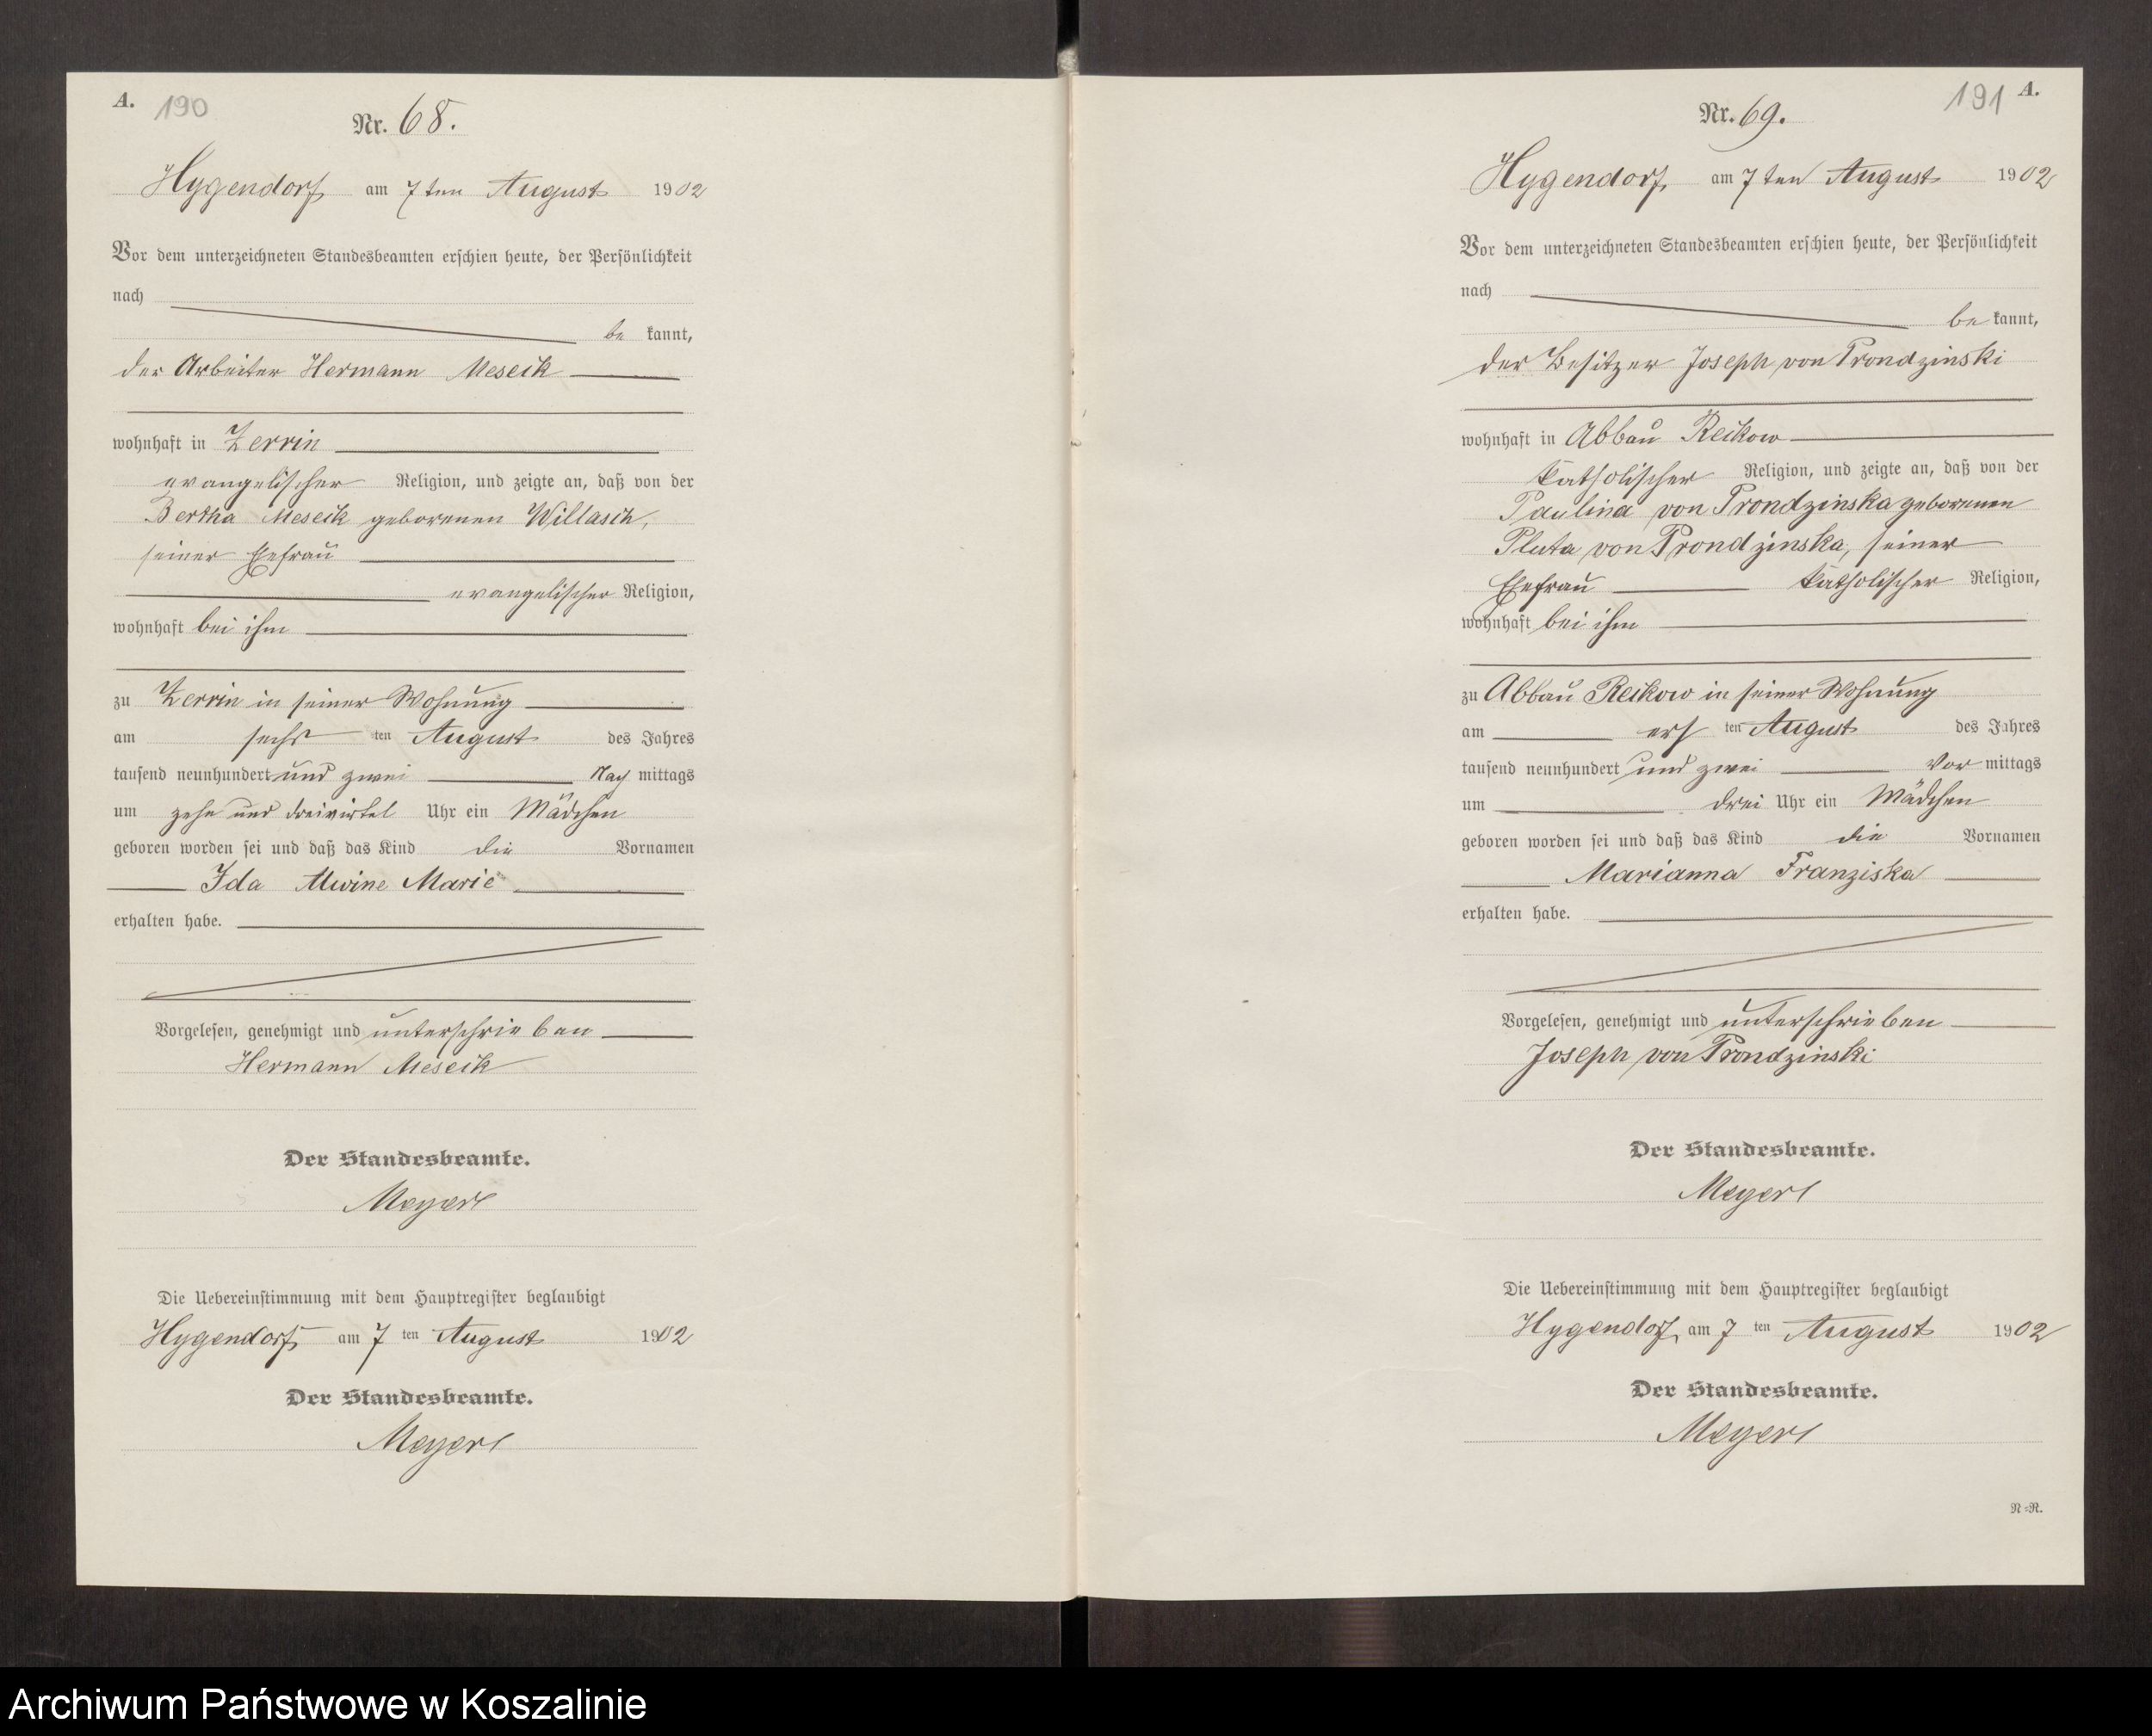 A. 190
Nr. 68.
Hygendorf am 7ten August 1902
Vor dem unterzeichneten Standesbeamten erschien heute, der Persönlichkeit
nach
be kannt,
der Arbeiter Hermann Meseck
wohnhaft in Zerrin
evangelischer Religion, und zeigte an, daß von der
Bertha Meseck geborenen Willasch,
seiner Ehefrau
evangelischer Religion,
wohnhaft bei ihm
zu Zerrin in seiner Wohnung
am sechs ten August des Jahres
tausend neunhundert und zwei Nach mittags
um zehn und dreiviertel Uhr ein Mädchen
geboren worden sei und daß das Kind die Vornamen
Ida Alwine Marie
erhalten habe.
Vorgelesen, genehmigt und unterschrieben
Hermann Meseck
Der Standesbeamte.
Meyer
Die Uebereinstimmung mit dem Hauptregister beglaubigt
Hygendorf am 7 ten August 1902
Der Standesbeamte.
Meyer
191 A.
Nr. 69.
Hygendorf, am 7ten August 1902
Vor dem unterzeichneten Standesbeamten erschien heute, der Persönlichkeit
nach
be kannt,
der Besitzer Joseph von Prondzinski
wohnhaft in Abbau Reckow
katholischer Religion, und zeigte an, daß von der
Paulina von Prondzinska geborenen
Pluta von Prondzinska, seiner
Ehefrau katholischer Religion,
wohnhaft bei ihm
zu Abbau Reckow in seiner Wohnung
am ers ten August des Jahres
tausend neunhundert und zwei Vor mittags
um drei Uhr ein Mädchen
geboren worden sei und daß das Kind die Vornamen
Marianna Franziska
erhalten habe.
Vorgelesen, genehmigt und unterschrieben
Joseph von Prondzinski
Der Standesbeamte.
Meyer
Die Uebereinstimmung mit dem Hauptregister beglaubigt
Hygendorf, am 7 ten August 1902
Der Standesbeamte.
Meyer
N=R.
Archiwum Państwowe w Koszalinie